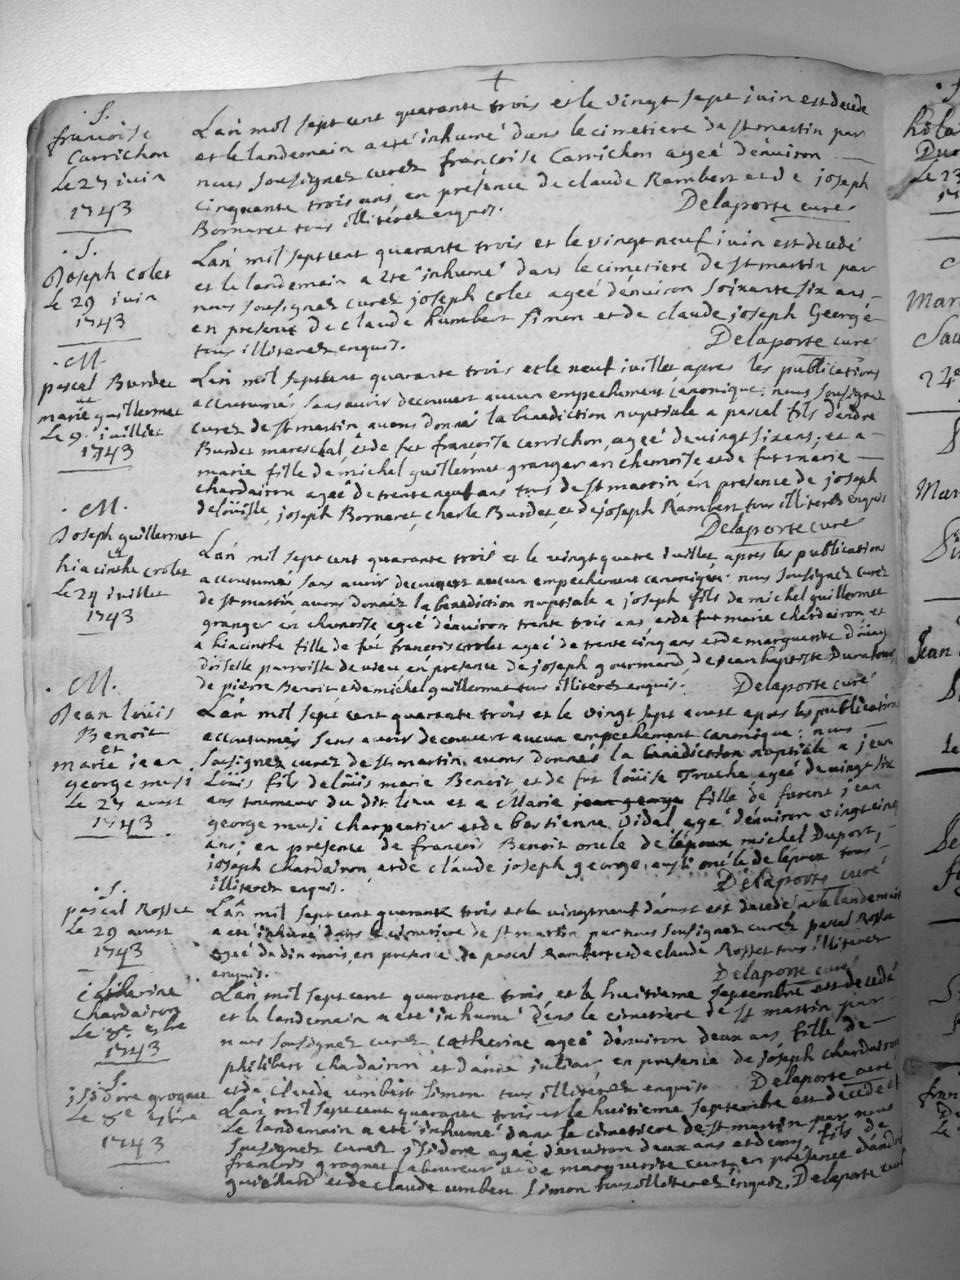 .S.
francoise
Carrichon
Le 27 juin
1743
L'an mil sept cent quarante trois et le vingt sept juin est decede
et le landemain a eté inhumé dans le cimetiere de st martin par
nous sousignez curez françoise Carrichon ageé d'enuiron
cinquante trois ans, en présence de claude Rambert et de joseph
Bornaret tous illiterés enquis.
Delaporte curé
.S.
Joseph colet
Le 29 juin
1743
L'an mil sept cent quarante trois et le vingt neuf juin est decedé
et le landemain a eté inhumé dans le cimetiere de st martin par
nous sousignez curez joseph colet ageé d'enuiron soixante six ans,
en presence de claude humbert simon et de claude joseph George
tous illiterez enquis.
Delaporte curé
.M.
pascal Burdet
et
marie guillermet
Le 9. juillet
1743
L'an mil sept cent quarante trois et le neuf juillet apres les publications
accoutumés sans auoir decouvert aucun empechement canonique; nous sousignez
curez de st martin auons donné la benediction nuptiale a pascal fils d'andre
Burdet mareschal, et de fut françoise carrichon, ageé de vingt six ans; et a
marie fille de michel guillermet granger en chamoise et de fut marie
chardairon ageé de trente neuf ans tous de st martin, en presence de joseph
joseph Bornaret, charle Burdet, et de joseph Rambert tous illiterés enquis
Delaporte curé
.M.
Joseph guillermet
et
hiacinthe crolet
Le 24 juillet
1743
L'an mil sept cent quarante trois et le vingt quatre juillet, apres les publication
accoutumés sans auoir decouvert aucun empechement canonique; nous sousignez curez
de st martin auons donnéz la benediction nuptiale a joseph fils de michel guillermet
granger en chamoise ageé d'enuiron trente trois ans et de fut marie chardairon et
a hiacinthe fille de feu francois crolet ageé de trente cinq ans et de marguerite
parroisse de vieu en présence de joseph gourmand, de jean baptiste
de pierre Benoit et de michel guillermet tous illiterés enquis.
Delaporte curé
.M.
Jean loüis
Benoit
et
marie jean
george musi
Le 27 aoust
1743
L'an mil sept cent quarante trois et le vingt sept aoust apres les publication
accoutumés sans auoir decouvert aucun empechement canonique; nous
sousignez curez de st martin, auons donnés la benediction nuptiale a jean
Loüis fils de loüis marie Benoit, et de fut loüise Truche, ageé de vingt six
ans tourneur du dit lieu et a Marie fille de jean
george musi charpentier et de bastienne Vidal, agé d'enuiron vingt cinq
ans; en presence de francois Benoit oncle de l'epoux michel Duport,
joseph chardairon et de claude joseph george, aussi oncle de l'epoux tous
illiterez enquis.
Delaporte curé
.S.
pascal Rosset
Le 29 aoust
1743
L'an mil sept cent quarante trois et le vingt neuf d'aoust est decedé et le landemain
a eté inhumé dans le cimetiere de st martin par nous sousignez curez pascal Rosset
ageé de dix mois, en presence de pascal Rambert et de claude Rosset tous illiterez
enquis.
Delaporte curé
Catherine
Chardairon
Le 8e 7bre
1743
L'an mil sept cent quarante trois et le huitieme septembre est decedé
et le landemain a eté inhumé dans le cimetiere de st martin par
nous sousignez curez Catherine ageé d'enuiron deux ans, fille de
philibert chardairon et d'anne julian, en presence de joseph chardairon
et de claude umbert simon tous illiterez enquis
Delaporte curé
.S.
jsidore grognet
Le 8e 7bre
1743
L'an mil sept cent quarante trois et le huitieme septembre est decedé et
Le landemain a eté inhumé dans le cimetiere de st martin par nous
sousignez curez jsidore ageé d'enuiron deux ans et demy fils de
francois grognet laboureur et de marguerite curt, en présence d'andré
guichard et de claude umbert simon tous illiterez enquis. Delaporte curé